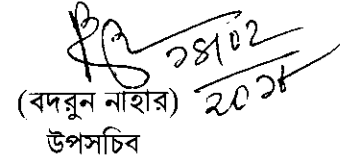 ১৪/০২
২০১৮
(বদরুন নাহার)
উপসচিব